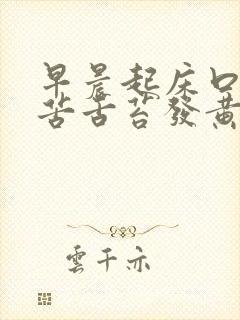 早晨起床口
苦舌苔發黃
雲千亦